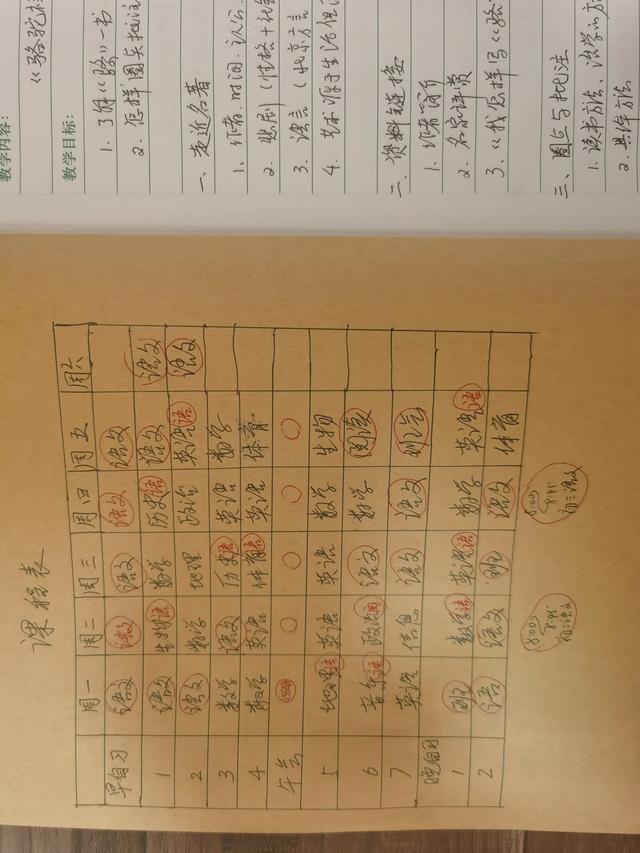 教学内容:
《骆驼
教学目标:
1. 了解《骆》一书
2. 怎样圈点批注
一、走近名著
1、作者.时间.认公.
2、悲剧(性格+社
3、语言(北京方言
4、艺术源于生活但
二、资料链接
1. 作者简介
2. 名家评赏
3、《我怎样写《骆
三、圈点与批注
1. 读书方法、治学的方
2. 具体方法
课程表
周一 周二 周三 周四 周五 周六
早自习 语文 语文 语文 语文 语文
1 语文 生物 语 数学 历史 语 语文 语文
2 语文 数学 地理 政治 英语 语 语文
3 数学 语文 历史 语 英语 数学
4 数学 英语 体育 语 英语 体育
午会
5 地理 语 英语 英语 数学 生物
6 音乐 语 政治 语文 数学 阅读
7 英语 信息 语文 语文 班会
晚自习
1 班 数学 语 英语 语 数学 英语 语
2 语 语文 班 语文 体育
8:00 8:45 初三语文
8:00 8:45 初三语文